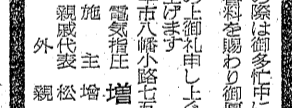 の際は御多忙中
料を賜わり御
の上御礼申し上
げます
市八幡小路七
電気指圧 増
施主 増
親戚代表 松
外 親